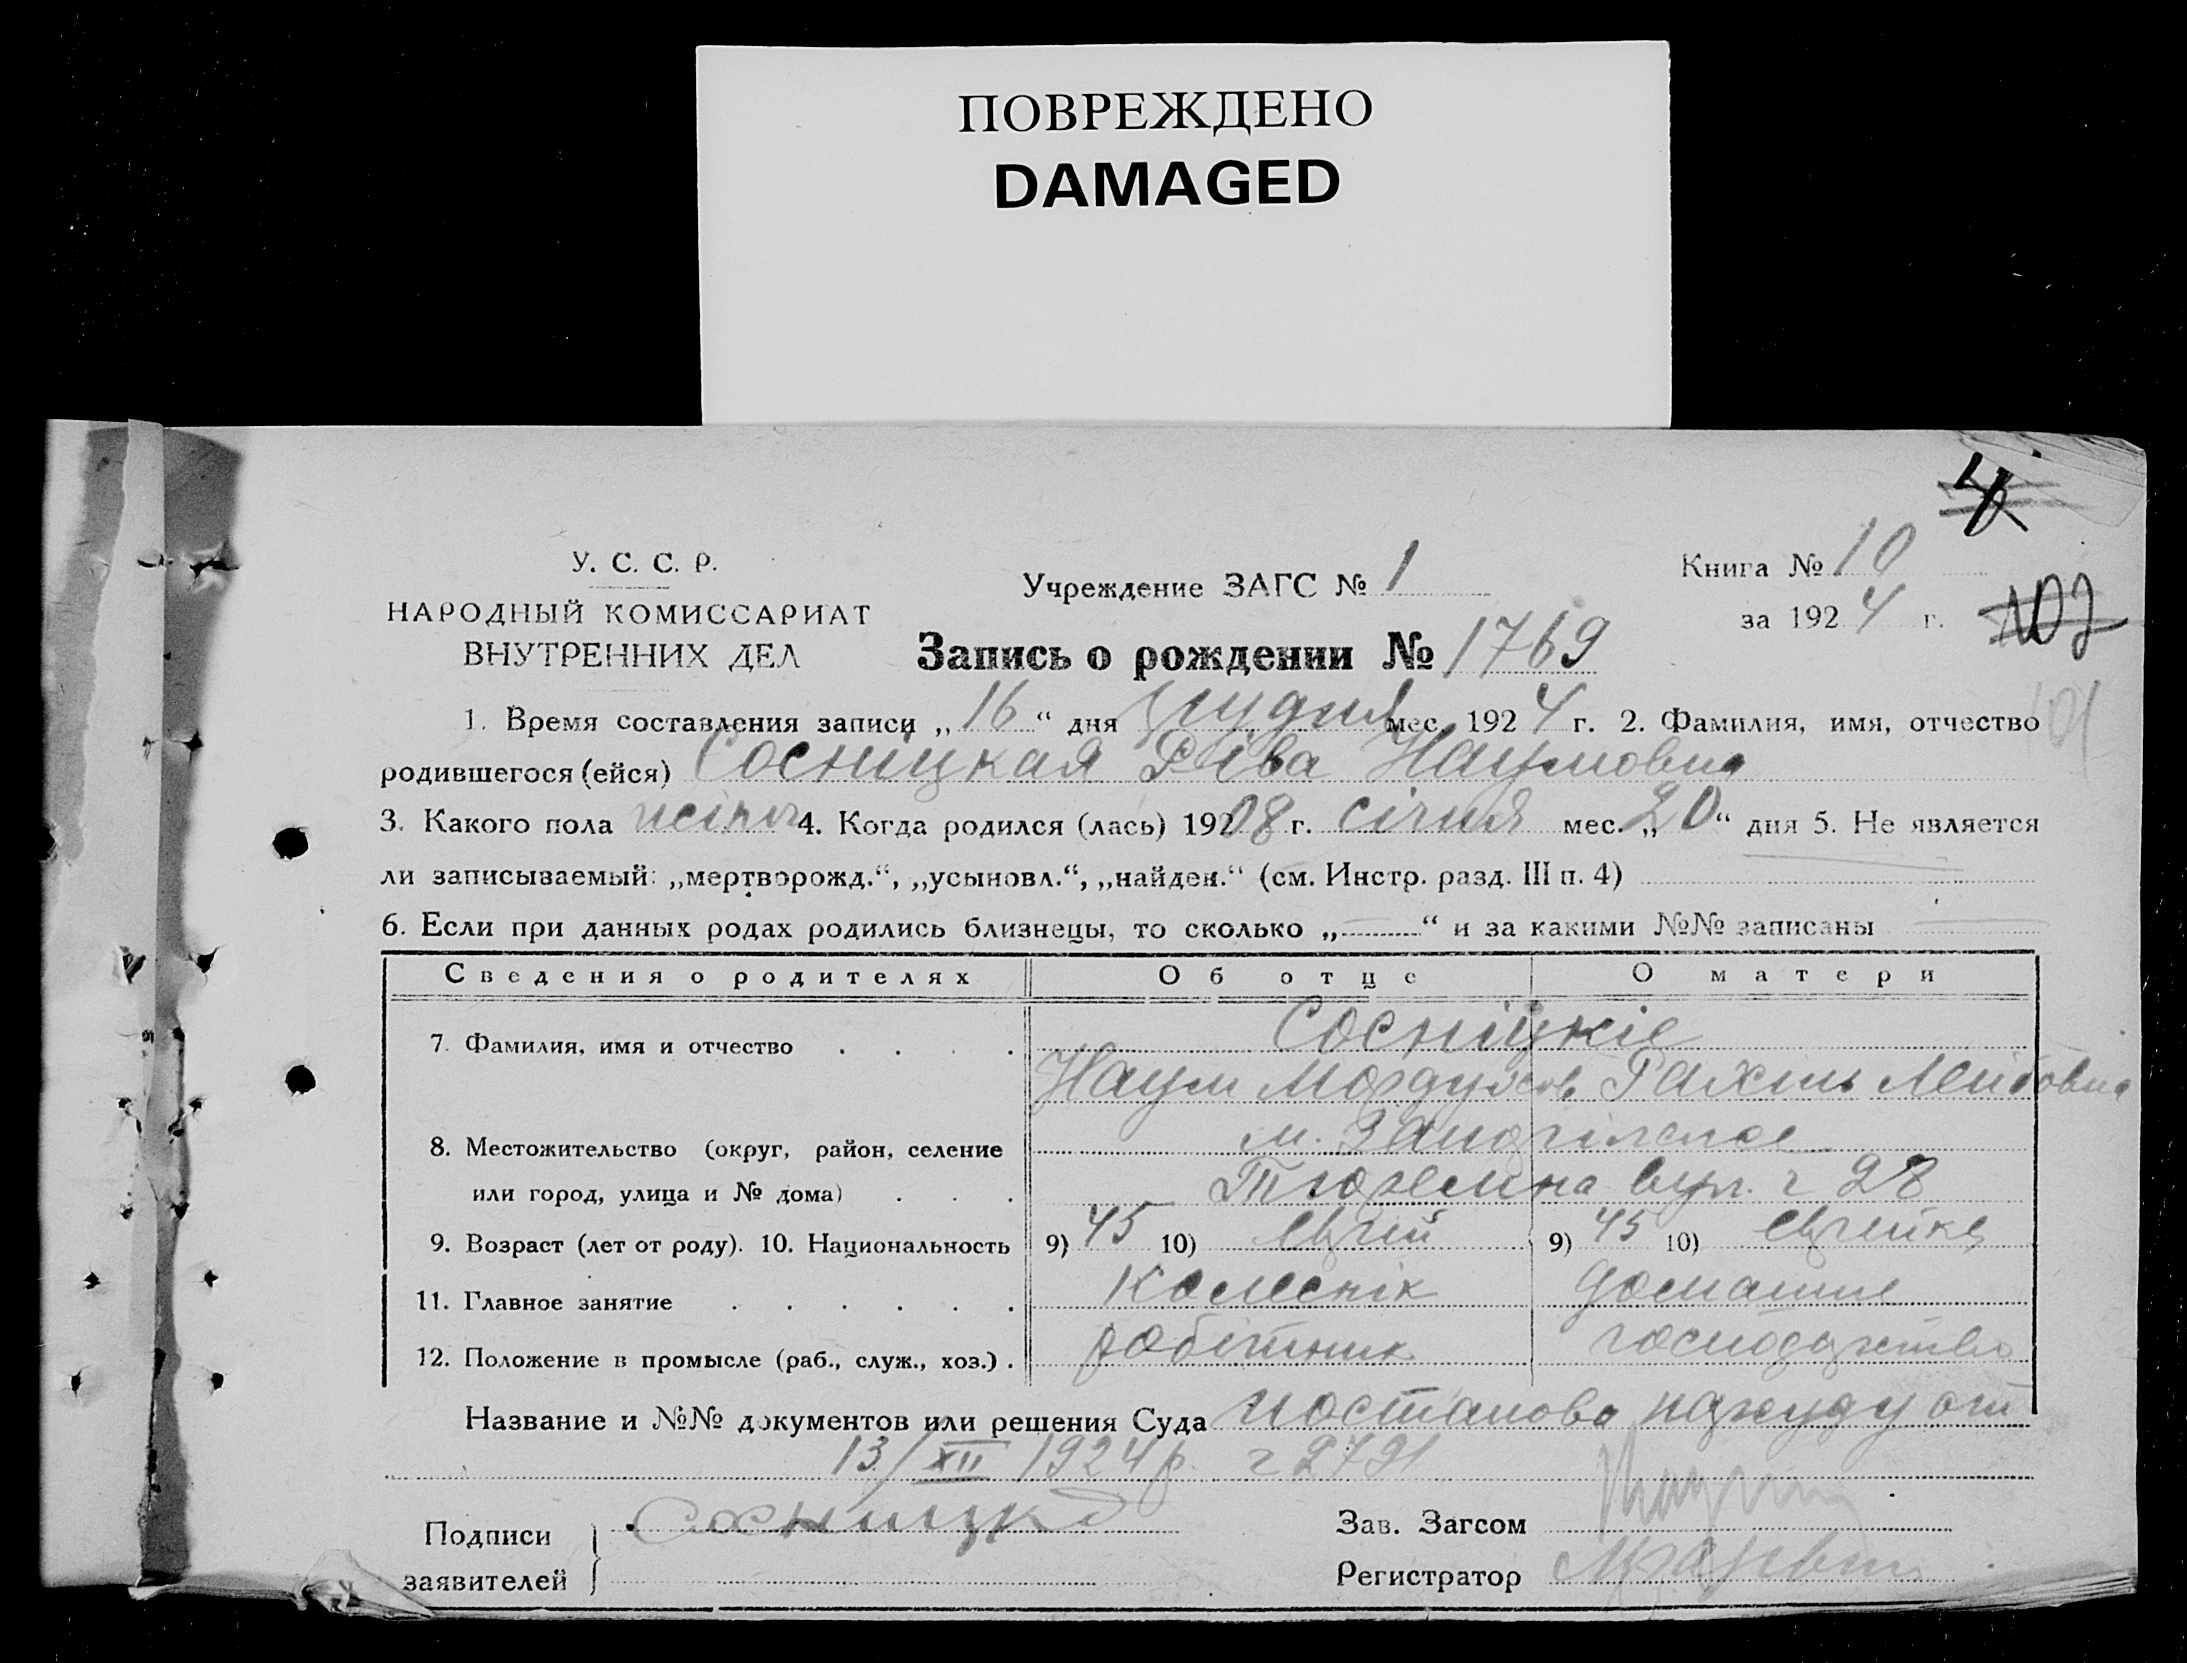 ПОВРЕЖДЕНО
DAMAGED
У. С. С. Р.
НАРОДНЫЙ КОМИССАРИАТ
ВНУТРЕННИХ ДЕЛ
Учреждение ЗАГС № 1
Книга № 10
за 1924 г.
Запись о рождении № 1769
1. Время составления записи „16“ дня грудня мес. 1924 г. 2. Фамилия, имя, отчество
родившегося (ейся) Сосніцкая Ріва Наумовна
3. Какого пола 4. Когда родился (лась) 19208 г. січня мес. „20“ дня 5. Не является
ли записываемый: „мертворожд.“, „усыновл.“, „найден.“ (см. Инстр. разд. III п. 4)
6. Если при данных родах родились близнецы, то сколько „—“ и за какими №№ записаны —
Сведения о родителях Об отце О матери
7. Фамилия, имя и отчество . . . . Сосніцкіе
Наум Мордухов Рахиль Лейбовна
8. Местожительство (округ, район, селение м.
или город, улица и № дома) . . . вул. ч 28
9. Возраст (лет от роду). 10. Национальность 9) 45 10) Єврей 9) 45 10) Єврейка
11. Главное занятие . . . . . . Колеснік домашнє
12. Положение в промысле (раб., служ., хоз.) . робітник господарство
Название и №№ документов или решения Суда постанова нарсуду от
13/XII 1924 р. ч 2791
Подписи
заявителей
Сосницкі
Зав. Загсом
Регистратор